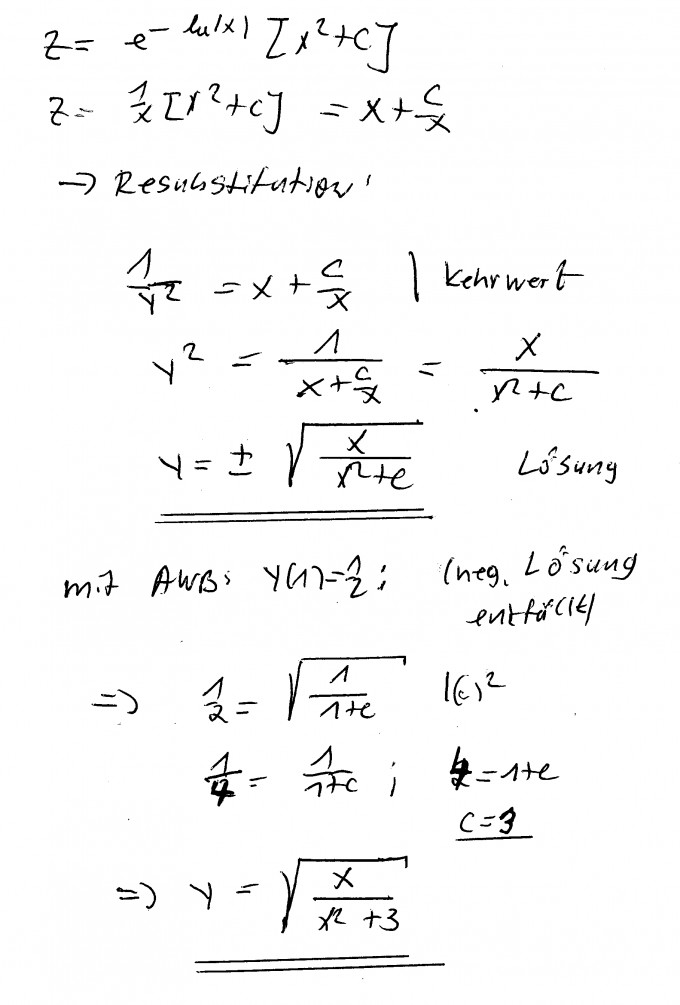 z = e^{-ln|x|} [x²+c]
z = 1/x [x²+c] = x + c/x
→ Resubstitution:
1/y² = x + c/x | Kehrwert
y² = 1/(x + c/x) = x/(x²+c)
y = ± √(x/(x²+c)) Lösung
mit AWB: y(1)=1/2; (neg. Lösung
entfällt)
=> 1/2 = √(1/(1+c)) |( )²
1/4 = 1/(1+c) ; 4 = 1+c
c = 3
=> y = √(x/(x²+3))